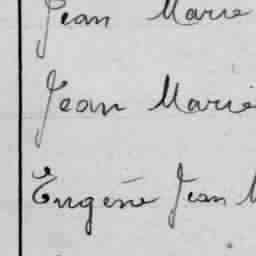 Jean Marie
Jean Marie
Eugène Jean